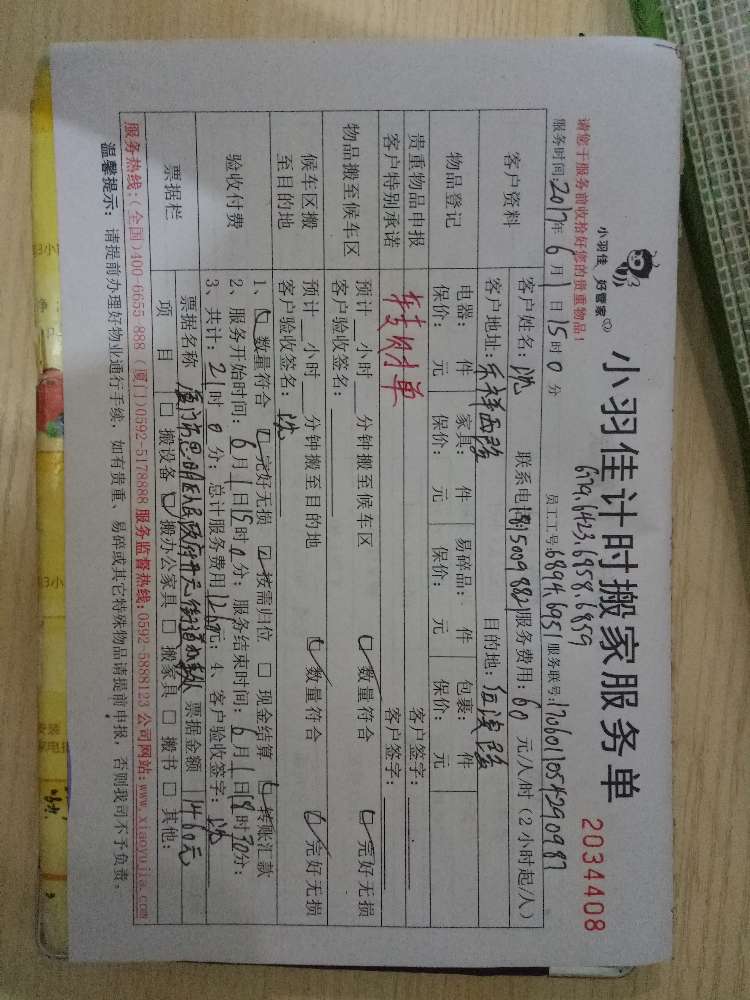 小羽佳 好管家
小羽佳计时搬家服务单
2034408
请您于服务前收拾好您的贵重物品!
679.6423.6958.6959
服务时间:2017年6月1日15时0分 员工工号:6894.6951 服务联号:1706011054290987
客户资料
客户姓名:沈 联系电话: 服务费用:60元/人/时(2小时起/人)
客户地址:禾祥西路 目的地:伍堡路
物品登记
电器: 件 家具: 件 易碎品: 件 包裹: 件
保价: 元 保价: 元 保价: 元 保价: 元
贵重物品申报 客户签字:
客户特别承诺 转财单 客户签字:
物品搬至候车区
预计 小时 分钟搬至候车区 数量符合 完好无损
客户验收签名:
候车区搬至目的地
预计 小时 分钟搬至目的地 数量符合 完好无损
客户验收签名:沈
验收付费
1、数量符合 完好无损 按需归位 □ 现金结算 转账汇款
2、服务开始时间:6月1日15时0分;服务结束时间:6月1日18时30分;
3、共计:21时0分;总计服务费用1260元;4、客户验收签字:沈
票据栏
票据名称 厦门市思明区人民政府开元街道办事处 票据金额 1460元
项 目 □ 搬设备 搬办公家具 □ 搬家具 □ 搬书 □ 其他:
服务热线:(全国)400-6655-888(厦门)0592-5178888 服务监督热线:0592-5888123 公司网站:www.xiaoyujia.com
温馨提示:请提前办理好物业通行手续,如有贵重、易碎或其它特殊物品请提前申报,否则我司不予负责。